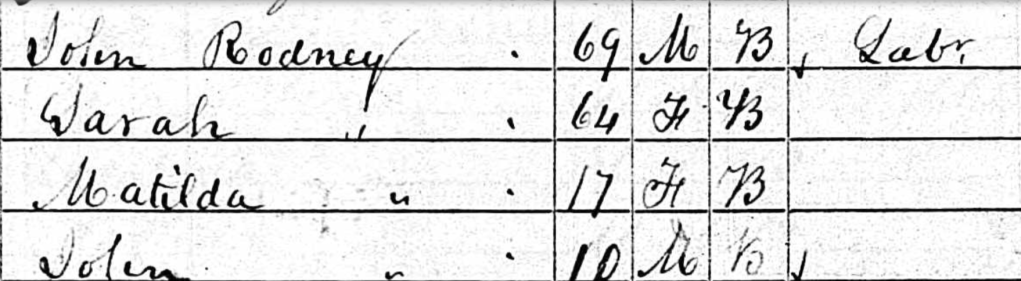 John Rodney 69 M B Labr
Sarah " 64 F B
Matilda " 17 F B
John " 10 M B